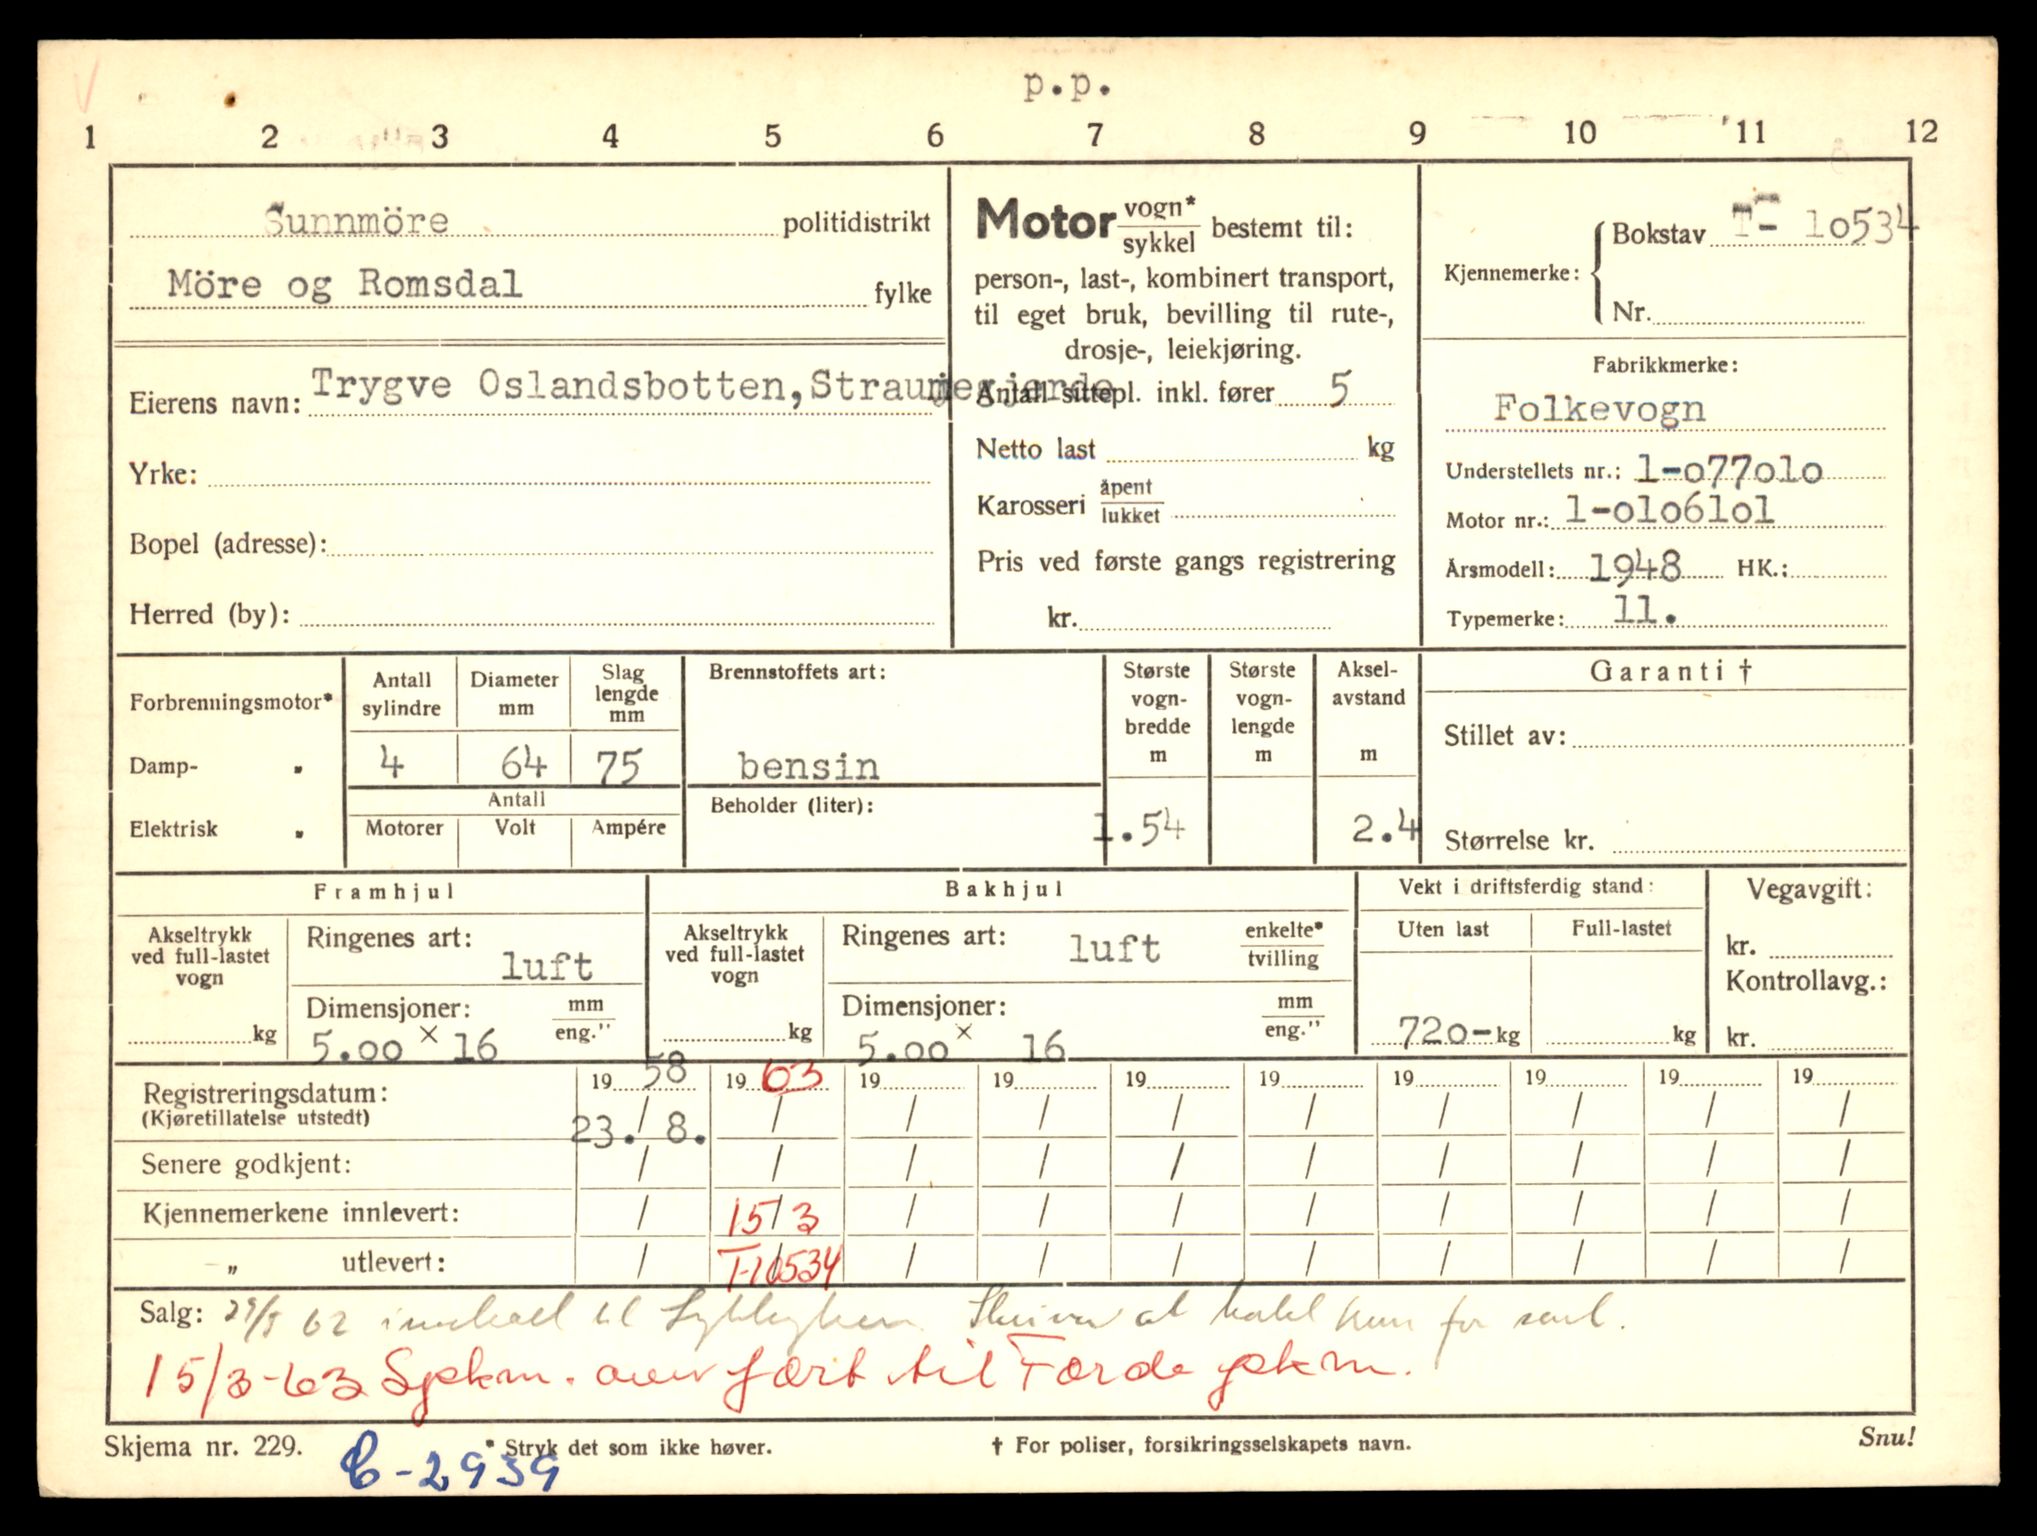 p.p.
1 2 3 4 5 6 7 8 9 10 11 12
Sunnmöre politidistrikt
Möre og Romsdal fylke
Eierens navn: Trygve Oslandsbotten, Straumegjerde
Yrke:
Bopel (adresse):
Herred (by):
Motor vogn* / sykkel bestemt til:
person-, last-, kombinert transport,
til eget bruk, bevilling til rute-,
drosje-, leiekjøring.
Antall sittepl. inkl. fører 5
Netto last kg
Karosseri åpent / lukket
Pris ved første gangs registrering
kr.
Kjennemerke: Bokstav T- 10534
Nr.
Fabrikkmerke:
Folkevogn
Understellets nr.: 1-077010
Motor nr.: 1-0106101
Årsmodell: 1948 HK.:
Typemerke: 11.
Forbrenningsmotor*
Damp- „
Elektrisk „
Antall sylindre
4
Diameter mm
64
Slag lengde mm
75
Antall
Motorer Volt Ampére
Brennstoffets art:
bensin
Beholder (liter):
Største vogn-bredde m
1.54
Største vogn-lengde m
Aksel-avstand m
2.4
Garanti †
Stillet av:
Størrelse kr.
Framhjul
Akseltrykk ved full-lastet vogn
kg
Ringenes art: luft
Dimensjoner: mm / eng."
5.00 × 16
Bakhjul
Akseltrykk ved full-lastet vogn
kg
Ringenes art: luft enkelte* / tvilling
Dimensjoner: mm / eng."
5.00 × 16
Vekt i driftsferdig stand:
Uten last Full-lastet
720- kg kg
Vegavgift:
kr.
Kontrollavg.:
kr.
Registreringsdatum: 19 58 19 63 19 19 19 19 19 19 19 19
(Kjøretillatelse utstedt) 23. / 8. / / / / / / / / /
Senere godkjent: / / / / / / / / / /
Kjennemerkene innlevert: / 15/3 / / / / / / / /
„ utlevert: / T-10534 / / / / / / / /
Salg: 62 til for
15/3-63 Spkm. overført til Førde pkm.
Skjema nr. 229. * Stryk det som ikke høver. † For poliser, forsikringsselskapets navn. Snu!
C-2939